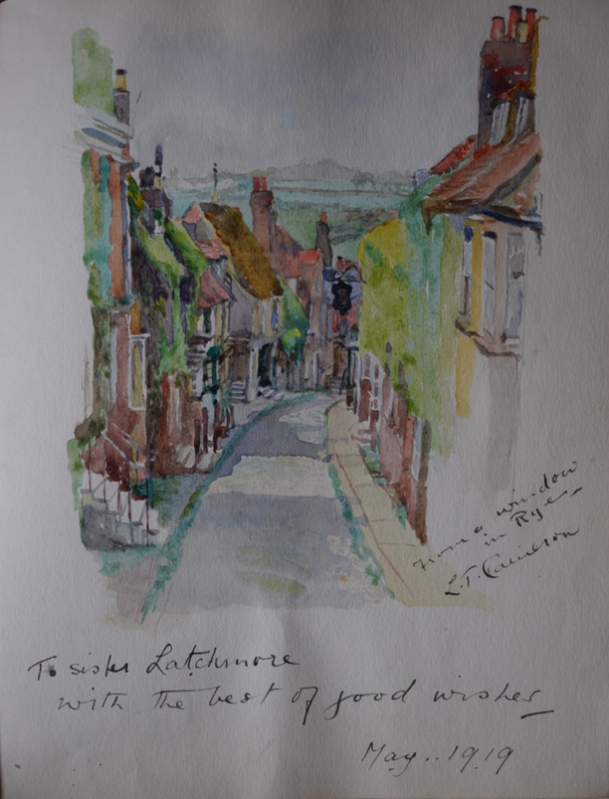 From a window
in Rye
L.T. Davidson
To sister Latchmore
with the best of good wishes
May.. 1919